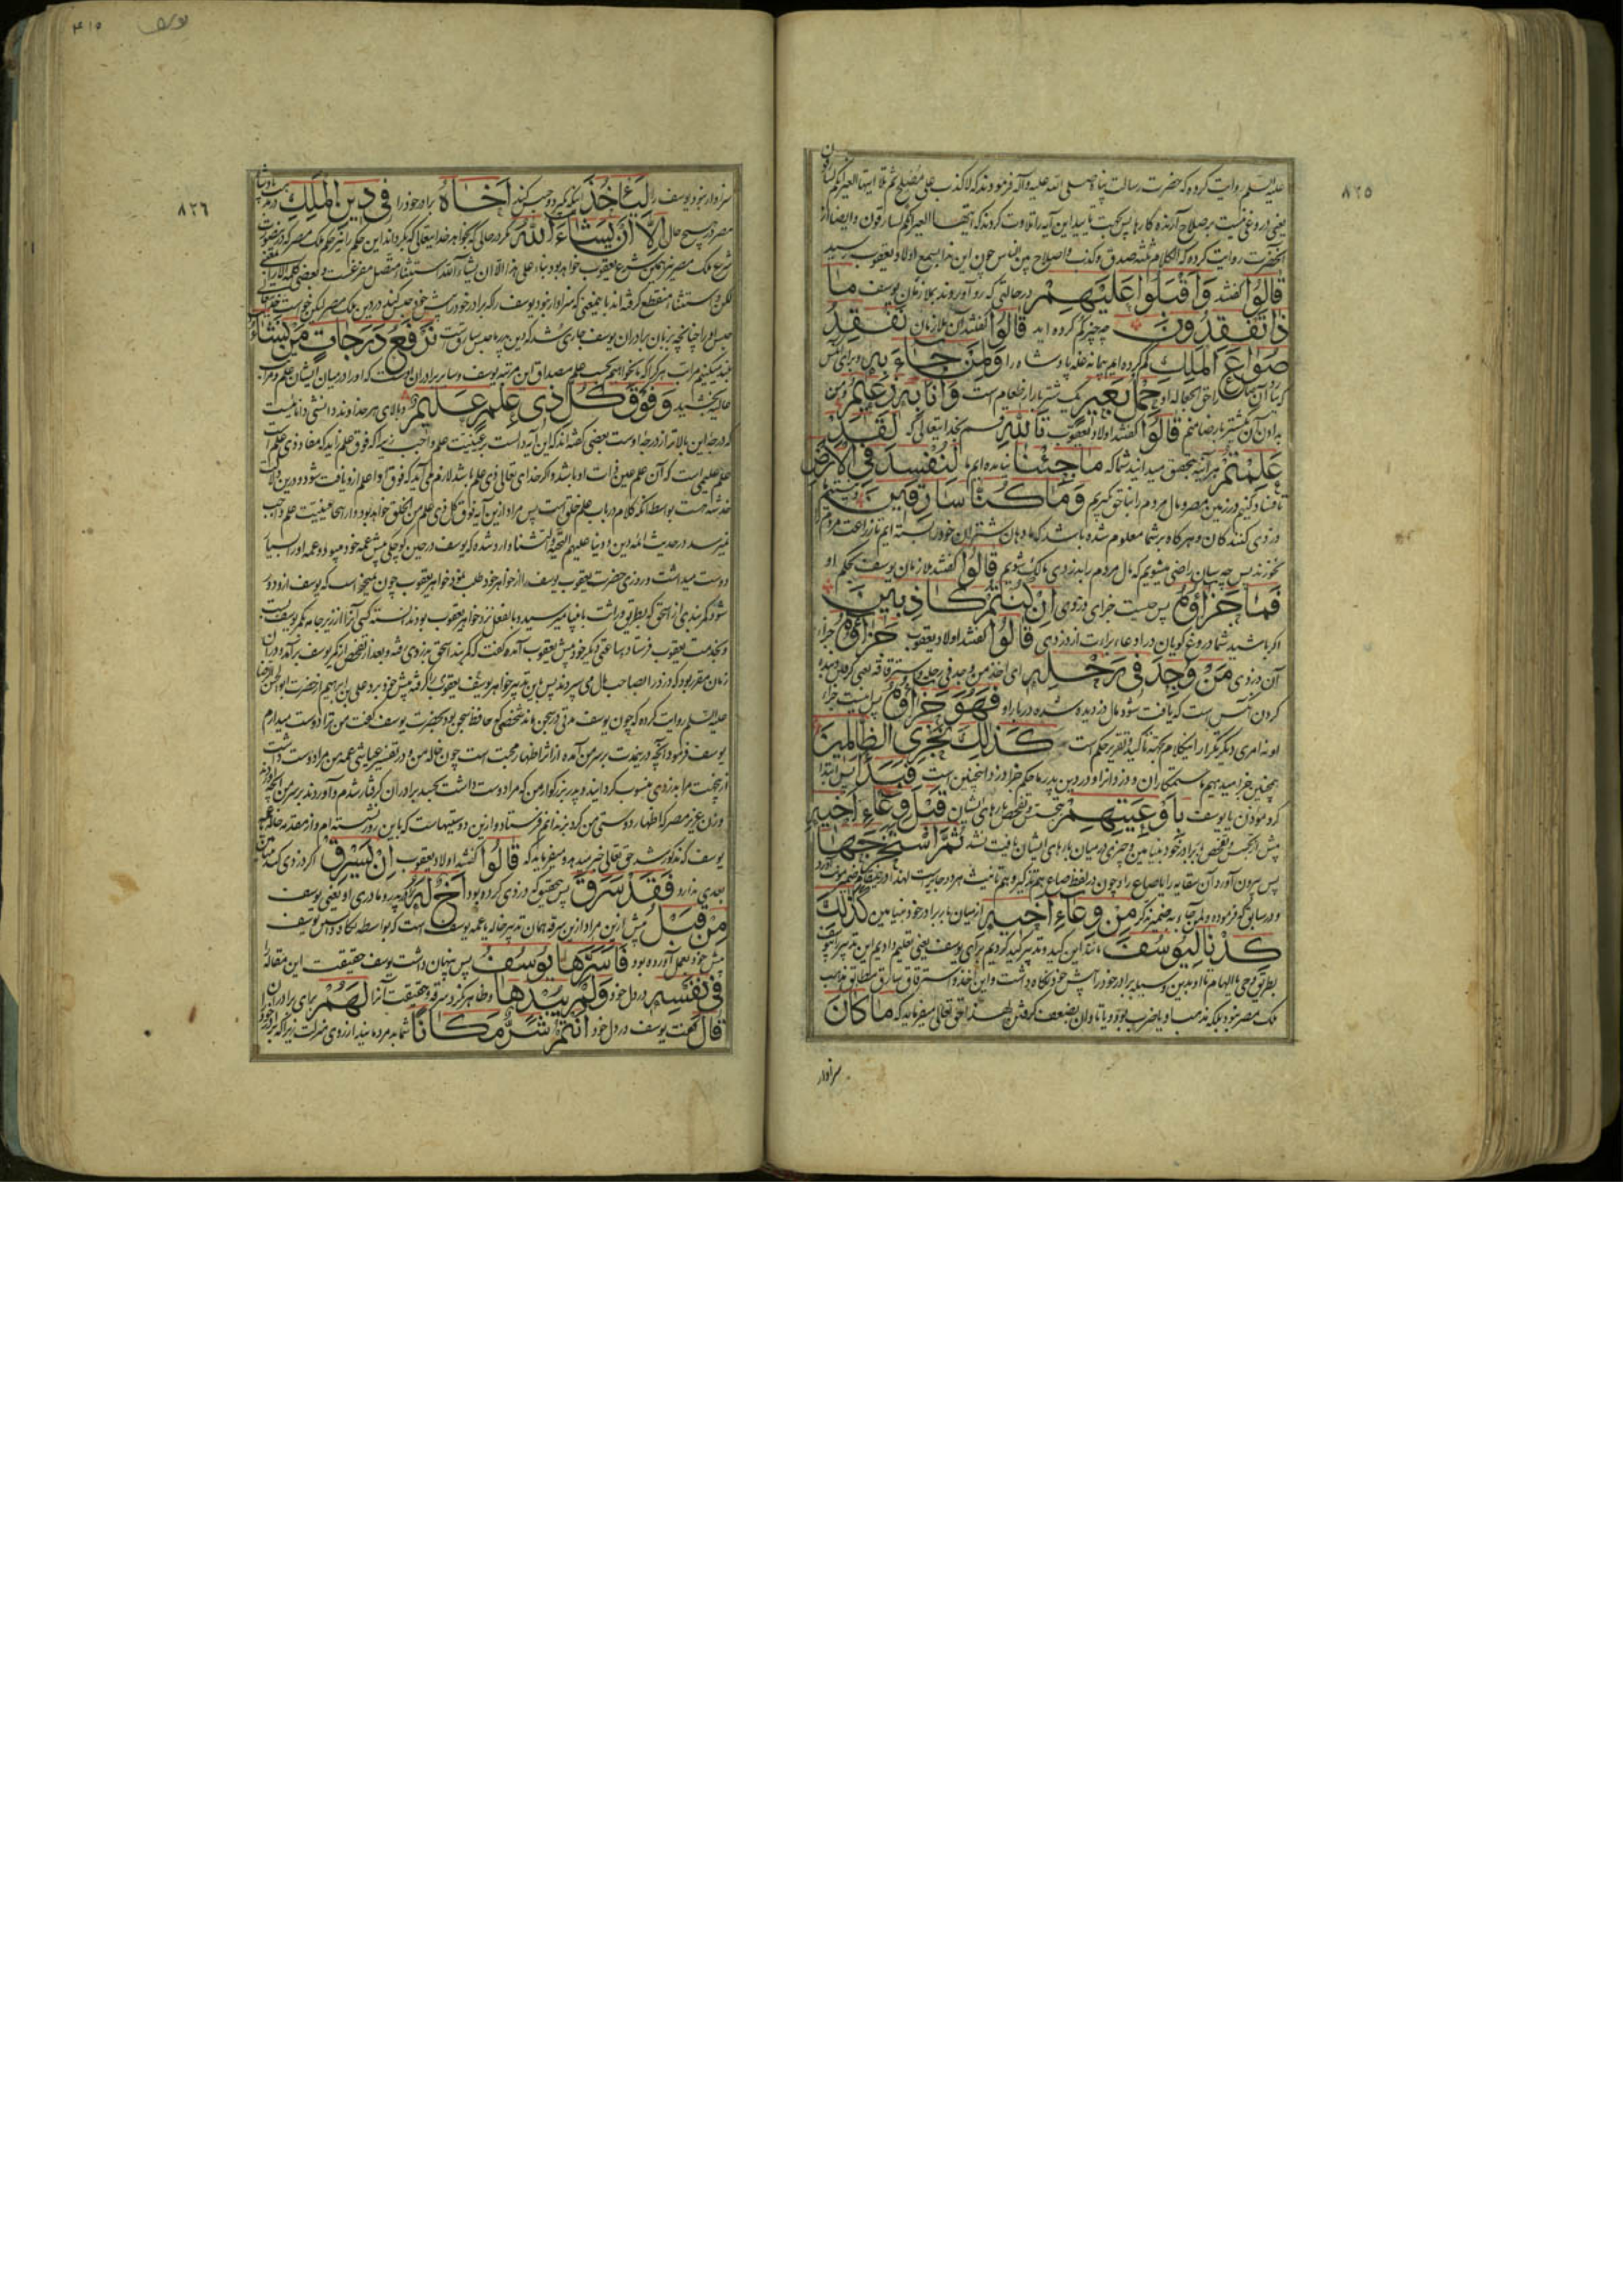 ٨٢٥
علیه السلم روایت کرده که حضرت رسالت پناه صلی الله علیه وآله فرمودند که لا کذب علی مصلح ثم تلا ایتها العیر انکم لسارقون
یعنی دروغی نیست بر صلاح آرنده کارها پس
آنحضرت روایت کرده که الکلام ثلثه صدق و کذب و اصلاح بین الناس چون این ندا بسمع اولاد یعقوب رسید
قَالُوا گفتند وَاَقْبَلُوا عَلَيْهِمْ در حالتی که رو آوردند بملازمان یوسف مَا
ذَا تَفْقِدُونَ چه چیز گم کرده اید قَالُوا گفتند آن ملازمان نَفْقِدُ
صُوَاعَ الْمَلِكِ گم کرده ایم پیمانه غله پادشاه را وَلِمَنْ جَاءَ بِهِ و برای آنکس
که بیارد آن صاع را حق الجعاله او حِمْلُ بَعِيرٍ یک شتر بار از طعام است وَاَنَا بِهِ زَعِيمٌ و من
بدادن آن یکشتر بار ضامنم قَالُوا گفتند اولاد یعقوب تَاللّٰهِ قسم بخدایتعالی که لَقَدْ
عَلِمْتُمْ هر آینه بتحقیق میدانید شما که مَا جِئْنَا نیامده ایم ما لِنُفْسِدَ فِي الْاَرْضِ
تا فساد کنیم در زمین مصر و مال مردم را بناحق گیریم وَمَا كُنَّا سَارِقِينَ و نیستیم ما
دزدی کنندگان و هرگاه بر شما معلوم شده باشد که ما دهان شتران خود را بسته ایم تا زراعت مردم
نخورند پس چه سان راضی میشویم که مال مردم را بدزدی مالک شویم قَالُوا گفتند ملازمان یوسف بحکم او
فَمَا جَزَاؤُهُ پس چیست جزای دزدی اِنْ كُنْتُمْ كَاذِبِينَ
اگر باشید شما دروغ گویان در ادعاء براءت از دزدی قَالُوا گفتند اولاد یعقوب جَزَاؤُهُ جزاء
آن دزدی مَنْ وُجِدَ فِي رَحْلِهِ ای اخذ من وجد فی رحله و استرقاقه یعنی گرفتن و بنده
کردن آنکس است که یافت شود مال دزدیده شده در بار او فَهُوَ جَزَاؤُهُ پس اینست جزاء
او نه امری دیگر تکرار این کلام بجهة تاکید و تقریر حکم است كَذٰلِكَ نَجْزِي الظَّالِمِينَ
همچنین جزا میدهیم ما ستمکاران و دزدانرا و در دین پدر ما حکم جزاء دزد اینچنین است فَبَدَاَ پس ابتدا
کرد مؤذن یا یوسف بِاَوْعِيَتِهِمْ بتجسس و تفحص بارهای ایشان قَبْلَ وِعَاءِ اَخِيهِ
پیش از تجسس و تفحص بار برادر خود بنیامین و چیزی در میان بارهای ایشان یافت نشد ثُمَّ اسْتَخْرَجَهَا
پس بیرون آورد آن سقایه را یا صاع را و چون در لفظ صاع هم تذکیر و هم تانیث هر دو جایز است لهذا
و در سابق که فرموده ولمن جاء به ضمیر مذکر مِنْ وِعَاءِ اَخِيهِ از میان بار برادر خود بنیامین كَذٰلِكَ
كِدْنَا لِيُوسُفَ مانند این کید و تدبیر کید کردیم برای یوسف یعنی تعلیم دادیم این تدبیر را بیوسف
بطریق وحی یا الهام تا او بدین وسیله برادر خود را پیش خود نگاه داشت و این اخذ و استرقاق سارق مطابق مذهب
ملک مصر نبود بلکه مذهب او یا ضرب بود و یا تاوان بضعف گرفتن لهذا حق تعالی میفرماید که مَا كَانَ
سزاوار
یوسف
٤١٥
٨٢٦
سزاوار نبود یوسف را لِيَاْخُذَ اینکه بگیرد و حبس کند اَخَاهُ برادر خود را فِي دِينِ الْمَلِكِ در مذهب پادشاه
مصر در هیچ حال اِلَّا اَنْ يَشَاءَ اللّٰهُ مگر در حالی که بخواهد خدایتعالی که بگرداند این حکم را نیز حکم ملک مصر که در نصوصات
شرع ملک مصر نیز همین شرع یعقوب خواهد بود بناء علی هذا الا ان یشاء الله استثناء متصل مفرغست و بعضی کلمه الا را بمعنی
لکن و استثناء منقطع گرفته اند یا بمعنی که سزاوار نبود یوسف را که برادر خود را پیش خود حبس کند در دین ملک مصر لیکن خواست خدایتعالی
حبس او را چنانچه بزبان برادران یوسف جاری شد که دین پدر ما حبس سارقست نَرْفَعُ دَرَجَاتٍ مَنْ نَشَاءُ
بلند میکنیم مراتب هر کرا که ما بخواهیم بحسب علم مصداق این مرتبه یوسف و سایر برادران اوست که او را در میان ایشان بعلم و مراتب
عالیه بخشید وَفَوْقَ كُلِّ ذِي عِلْمٍ عَلِيمٌ و بالای هر خداوند دانشی دانائیست
که درجه این بالاتر از درجه اوست بعضی گفته اند که این آیه دال است بر عینیت علم واجب زیرا که فوق علم زاید که مفاد ذی علم است
علم علیمی است که آن علم عین ذات او باشد و اگر خدای تعالی ذی علم باشد لازم می آید که فوق او اعلم از او یافت شود و درین دلالت
خدشه هست بواسطه آنکه کلام در باب علم خلق است پس مراد از این آیه فوق کل ذی علم من الخلق خواهد بود و از اینجا عینیت علم واجب
نمیرسد و در حدیث ائمه دین و دنیا علیهم التحیة و الثناء وارد شده که یوسف در حین کوچکی پیش عمه خود میبود و عمه او را بسیار
دوست میداشت و روزی حضرت یعقوب یوسف را از خواهر خود طلب نمود خواهر یعقوب چون میخواست که یوسف از او دور
نشود کمربندی از اسحق که بطریق وراثت بانبیا میرسید و بالفعل نزد خواهر یعقوب بود ندانسته کسی آنرا از زیر جامه بکمر یوسف بست
و بخدمت یعقوب فرستاد و ساعتی دیگر خود پیش یعقوب آمده گفت که کمربند اسحق بدزدی رفته و بعد از تفحص از کمر یوسف برآمد و در آن
زمان مقرر بود که دزد را بصاحب مال می سپردند پس باین تدبیر خواهر یعقوب یوسف را گرفته پیش خود برد و علی بن ابراهیم از حضرت ابوالحسن الرضا
علیه السلم روایت کرده که چون یوسف مدتی در سجن ماند شخصی که حافظ سجن بود بحضرت یوسف گفت من ترا دوست میدارم
یوسف فرمود آنچه در بیغدرت بر سر من آمده از اثر اظهار محبت است چون خاله من و در تفسیر عیاشی عمه من مرا دوست داشت
از بیجهت مرا بدزدی منسوب گردانید و پدر بزرگوار من که مرا دوست داشت بحسد برادران گرفتار شدم و آوردند بر سر من آنچه آوردند
و زن عزیز مصر که اظهار دوستی من کرد بزندانم فرستاد و از این دوستیهاست که باین روز نشسته ام و از مقدمه خاله یا عمه
یوسف که مذکور شد حق تعالی خبر میدهد و میفرماید که قَالُوا گفتند اولاد یعقوب اِنْ يَسْرِقْ اگر دزدی کند بنیامین
بعدی ندارد فَقَدْ سَرَقَ پس بتحقیق که دزدی کرده بود اَخٌ لَهُ برادر پدر و مادری او یعنی یوسف
مِنْ قَبْلُ پیش ازین مراد از این سرقه همان تدبیر خاله یا عمه یوسف است که بواسطه نگاه داشتن یوسف
پیش خود بعمل آورده بود فَاَسَرَّهَا يُوسُفُ پس پنهان داشت یوسف حقیقت این مقاله را
فِي نَفْسِهِ در دل خود وَلَمْ يُبْدِهَا و ظاهر نکرد سرقه و حقیقت آنرا لَهُمْ برای برادران
قَالَ گفت یوسف در دل خود اَنْتُمْ شَرٌّ مَكَانًا شما بد مرده یید از روی منزلت زیرا که برادر خود را